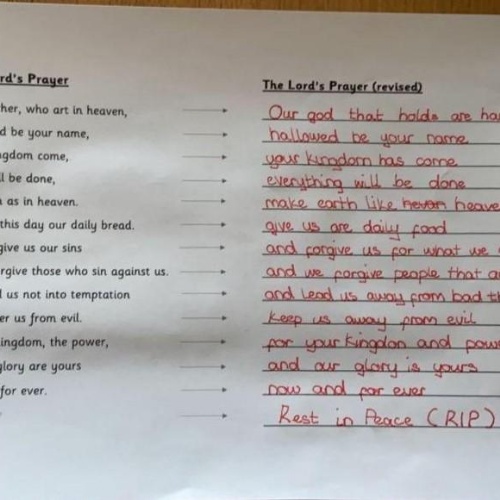 rd's Prayer The Lord's Prayer (revised)
her, who art in heaven, Our god that holds are ha
d be your name, hallowed be your name
gdom come, your kingdom has come
l be done, everything will be done
as in heaven. make earth like heven heave
this day our daily bread. give us are daily food
give us our sins and forgive us for what we
rgive those who sin against us. and we forgive people that a
d us not into temptation and lead us away from bad th
er us from evil. keep us away from evil
ingdom, the power, for your kingdon and pow
glory are yours and our glory is yours
for ever. now and for ever
Rest in Peace (RIP)